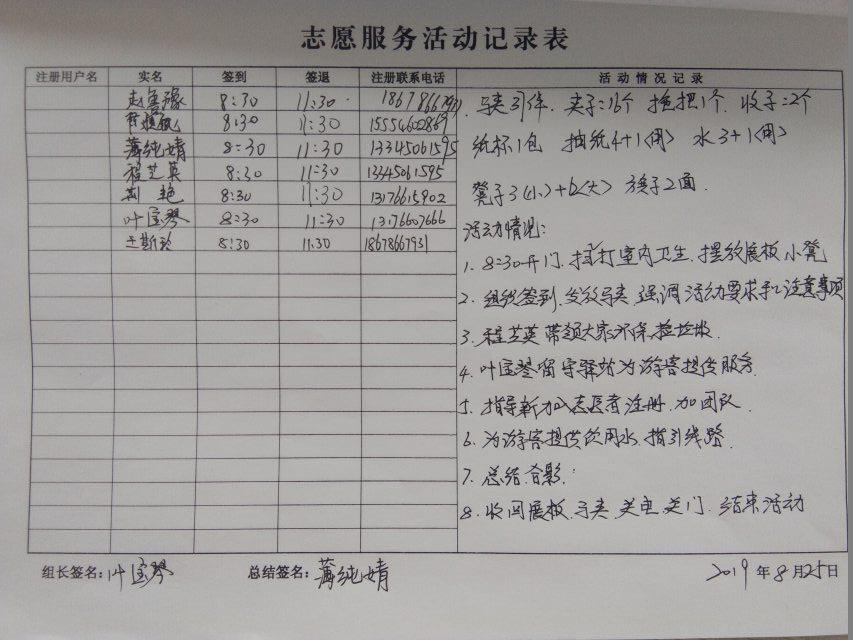 志愿服务活动记录表
注册用户名 实名 签到 签退 注册联系电话 活动情况记录
赵鲁豫 8:30 11:30 18678667931
8:30 11:30 15554602869
蒲纯婧 8:30 11:30 13345061595
程芝英 8:30 11:30 13345061595
荆艳 8:30 11:30 13176615902
叶宝琴 8:30 11:30 13176607666
王斯 8:30 11:30 18678667931
马夹9件. 夹子:16个 拖把1个. 收子:2个
纸杯1包 抽纸4+1(用) 水3+1(用)
凳子3(小)+6(大) 镜子2面.
活动情况:
1. 8:30开门. 扫打室内卫生. 摆放展板、小凳
2. 组织签到. 发放马夹 强调活动要求和注意事项
3. 程芝英带领大家环保捡垃圾.
4. 叶宝琴留守驿站为游客提供服务.
5. 指导新加入志愿者注册. 加团队.
6. 为游客提供饮用水. 指引线路.
7. 总结.合影.
8. 收回展板.马夹 关电.关门. 结束活动
组长签名:叶宝琴 总结签名:蒲纯婧 2019年8月25日